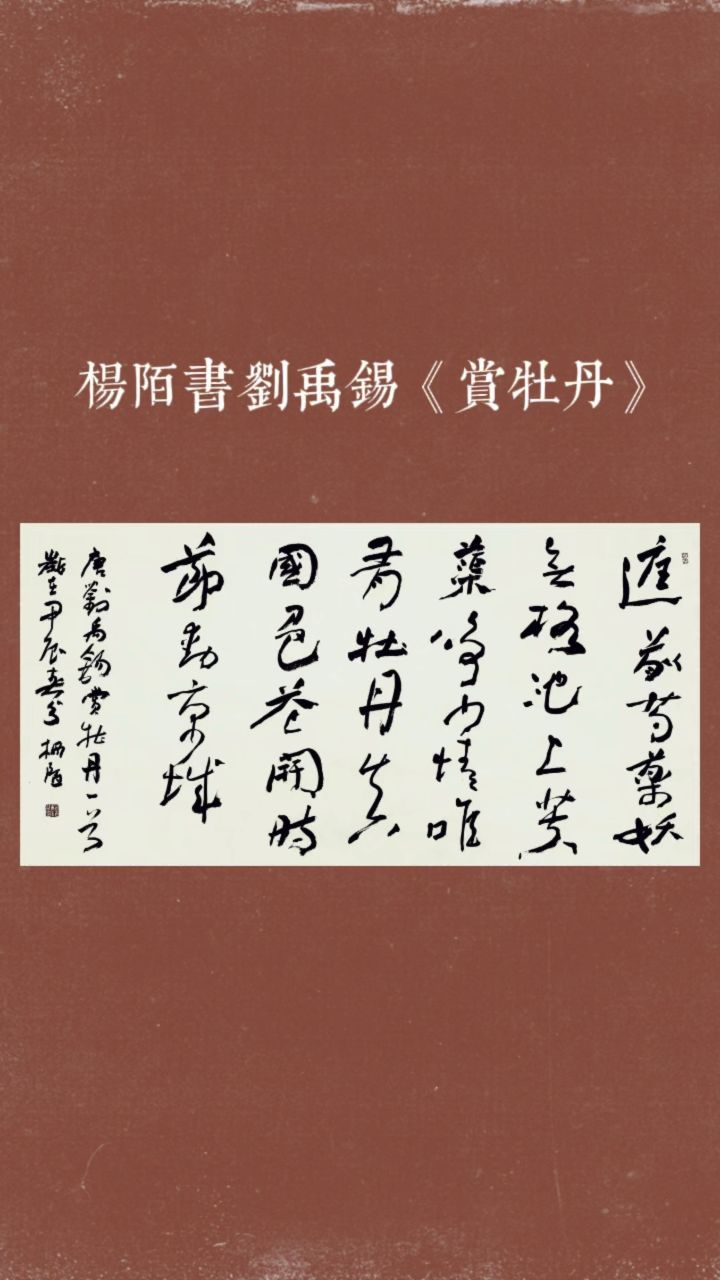 楊陌書劉禹錫《賞牡丹》
庭前芍藥妖
無格池上芙
蕖淨少情唯
有牡丹真
國色花開時
節動京城
唐劉禹錫賞牡丹一首
歲在甲辰春 楊陌